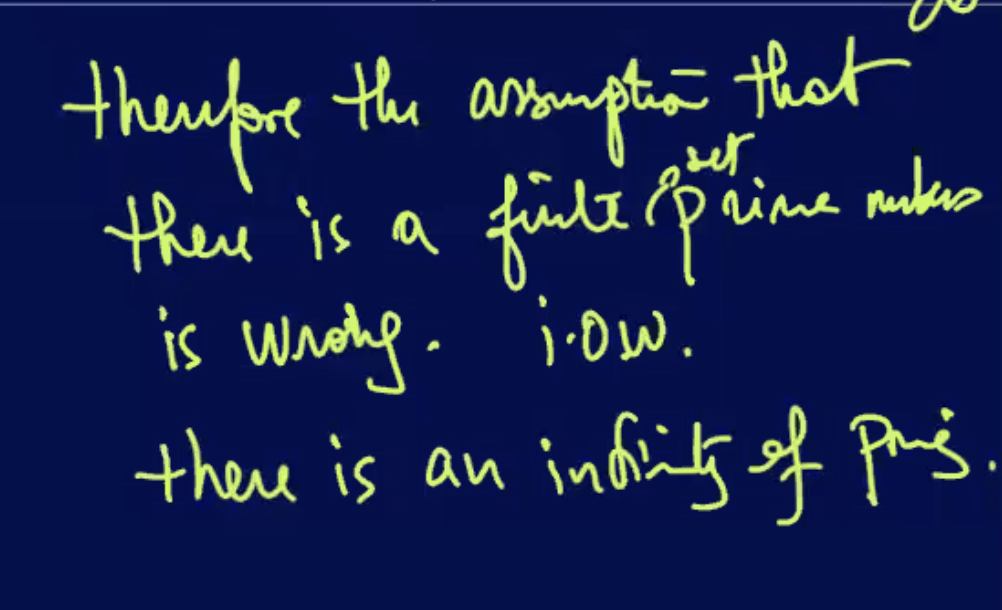 therefore the assumption that
there is a finite set of prime numbers
is wrong. i.o.w.
there is an infinity of primes.